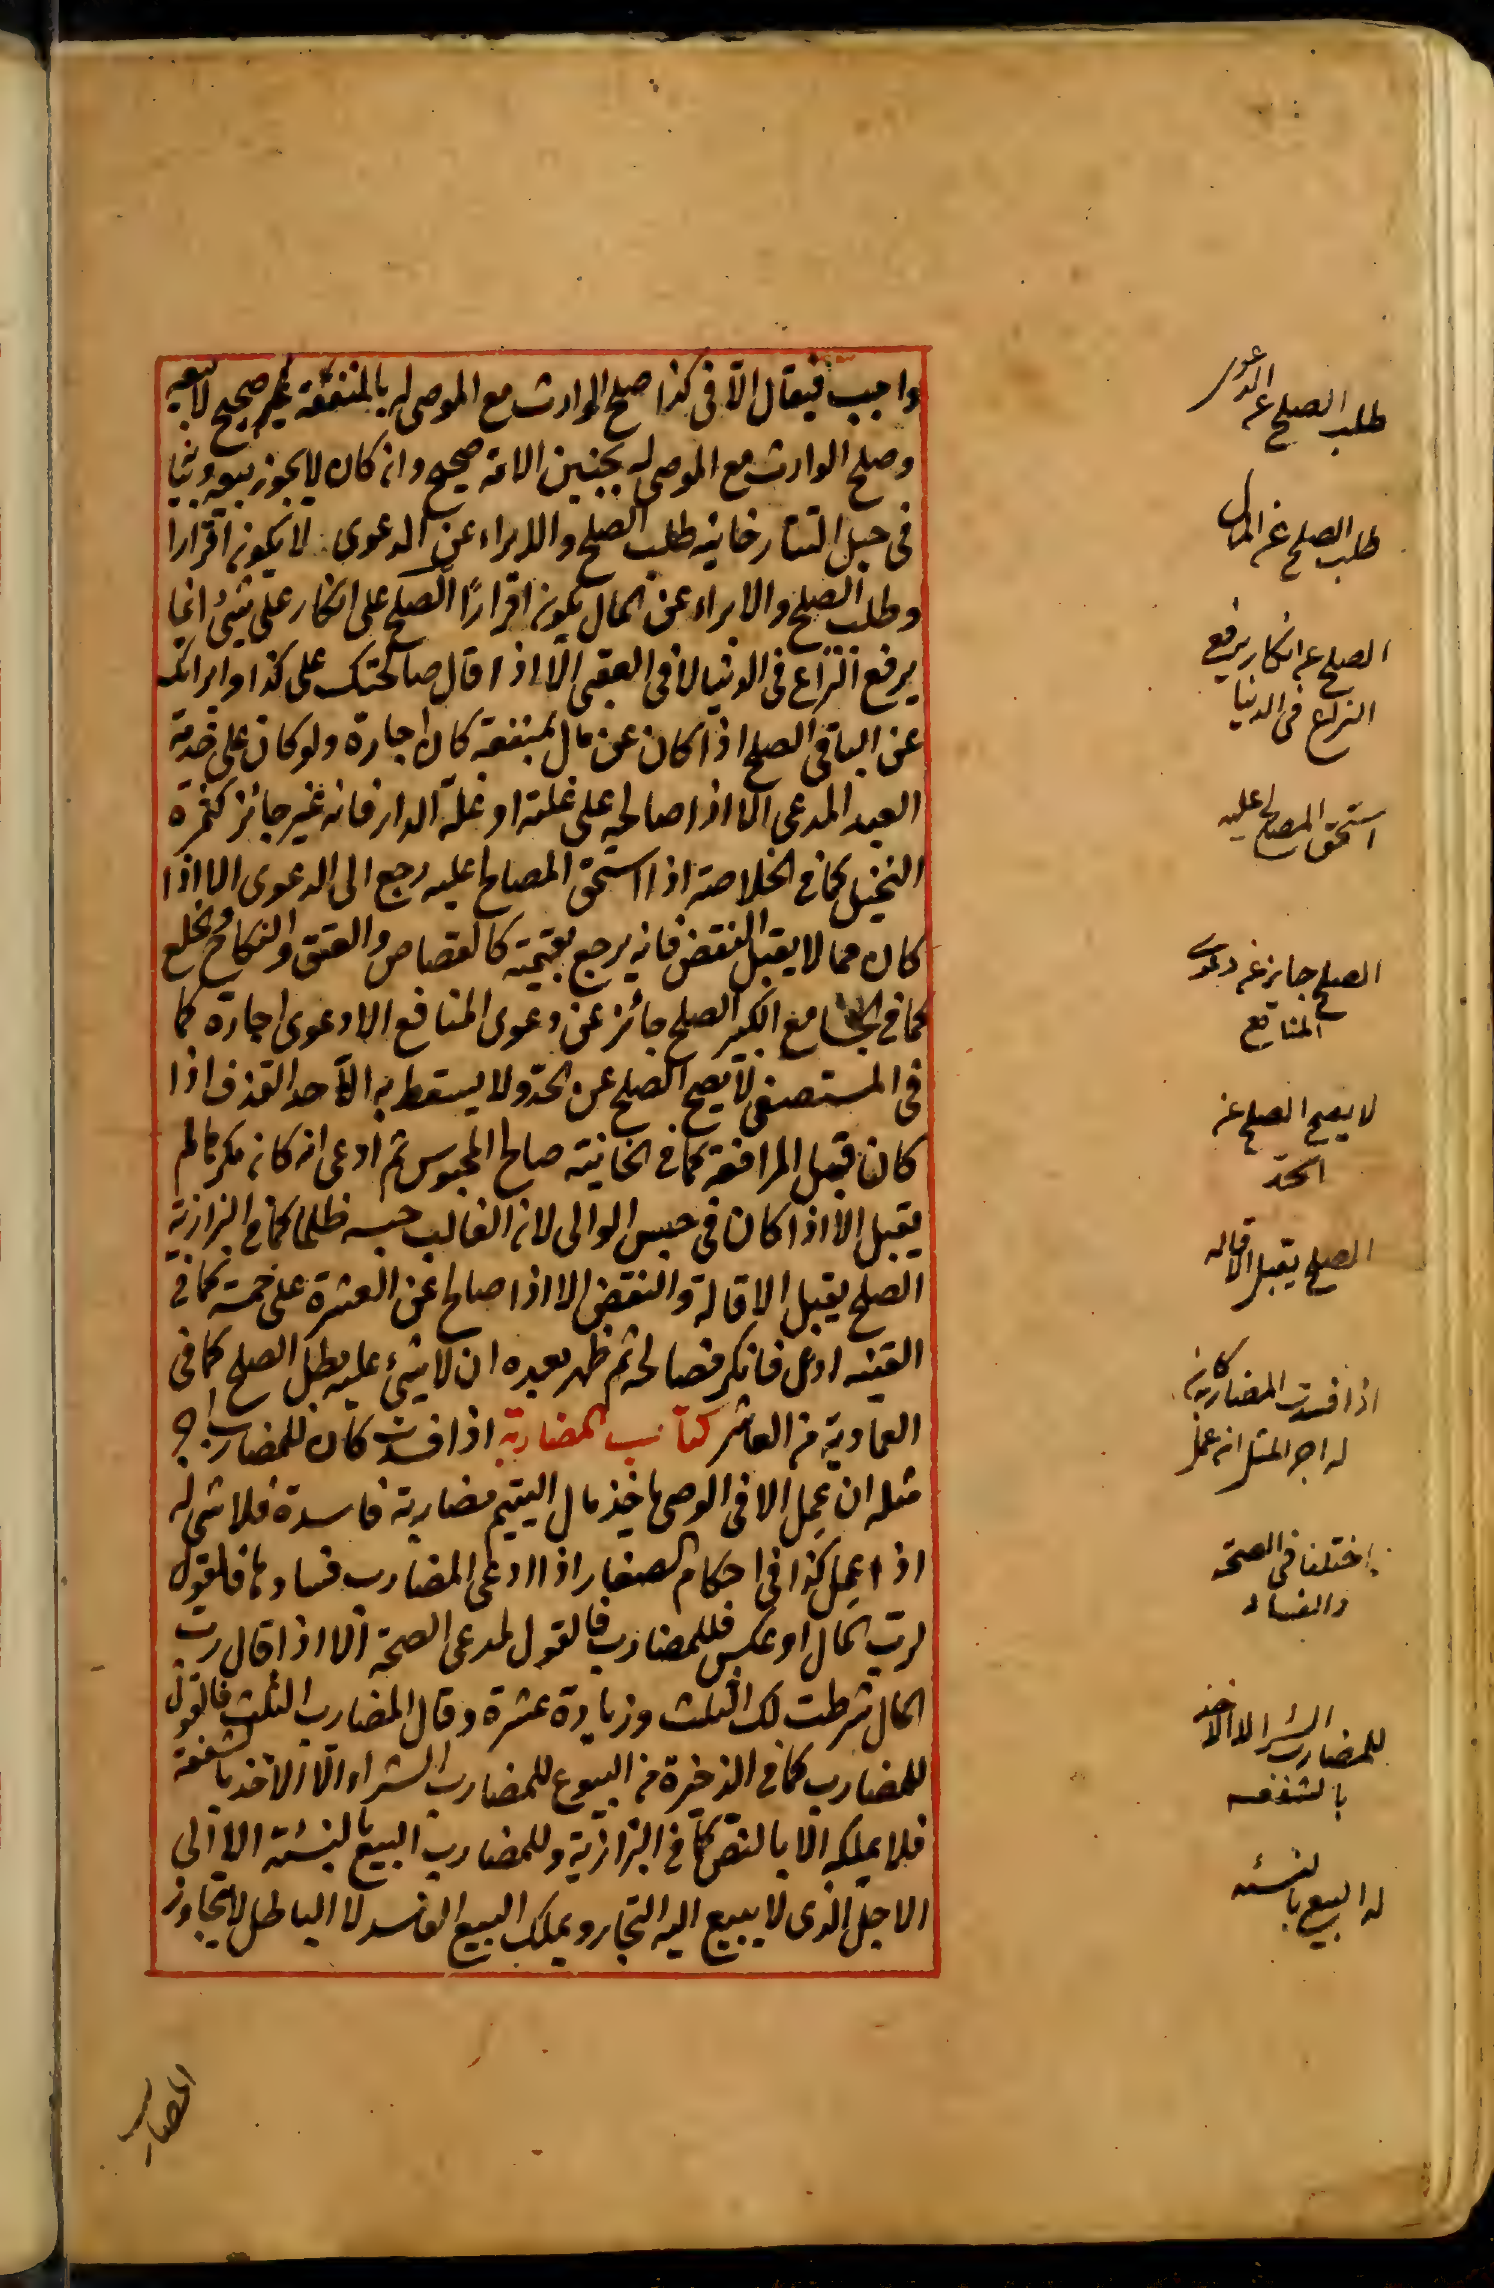 واجب فيقال الا فى كذا صلح الوارث مع الموصى له بالمنفعة غير صحيح لا بيعه
وصلح الوارث مع الموصى له بجنين الامة صحيح وان كان لا يجوز بيعه وبينا
فى حيل التتارخانيه طلب الصلح والابراء عن الدعوى لا يكون اقرارا
وطلب الصلح والابراء عن المال يكون اقرارًا الصلح على انكار على شئ انما
يرفع النزاع فى الدنيا لا فى العقبى الا اذا قال صالحتك على كذا وابراتك
عن الباقى الصلح اذا كان عن مال بمنفعة كان اجارة ولو كان على خدمة
العبد المدعى الا اذا صالحه على غلته او غلة الدار فانه غير جائز كثمرة
النخيل كما فى الخلاصة اذا استحق المصالح عليه رجع الى الدعوى الا اذا
كان مما لا يقبل النقض فانه يرجع بقيمته كالقصاص والعتق والنكاح والخلع
كما فى الجامع الكبير الصلح جائز عن دعوى المنافع الا دعوى اجارة كما
فى المستصفى لا يصح الصلح عن الحد ولا يسقط به الا حد القذف اذا
كان قبل المرافعة كما فى الخانية صالح المحبوس ثم ادعى انه كان مكرها لم
يقبل الا اذا كان فى حبس الوالى لان الغالب حبسه ظلما كما فى البزازية
الصلح يقبل الاقالة والنقض الا اذا صالح عن العشرة على خمسة كما فى
القنيه ادعى فانكر فصالحه ثم ظهر بعده ان لا شئ عليه بطل الصلح كما فى
العمادية من العاشر كتاب المضاربة اذا فسدت كان للمضارب اجر
مثله ان عمل الا فى الوصى ياخذ مال اليتيم مضاربة فاسدة فلا شئ له
اذا عمل كذا فى احكام الصغار اذا ادعى المضارب فسادها فالقول
لرب المال او عكس فللمضارب فالقول لمدعى الصحة الا اذا قال رب
المال شرطت لك الثلث وزيادة عشرة وقال المضارب الثلث فالقول
للمضارب كما فى الذخيرة من البيوع للمضارب الشراء الا الاخذ بالشفعة
فلا يملكه الا بالنص كما فى البزازية وللمضارب البيع بالنسئة الا الى
الاجل الذى لا يبيع اليه التجار ويملك البيع الفاسد لا الباطل لا يتجاوز
طلب الصلح عن الدعوى
طلب الصلح عن المال
الصلح عن انكار يرفع
النزاع فى الدنيا
استحق المصالح عليه
الصلح جايز عن دعوى
المنافع
لا يصح الصلح عن
الحد
الصلح يقبل الاقاله
اذا فسدت المضاربة كان
له اجر المثل ان عمل
اختلفا فى الصحة
والفساد
للمضارب الشرا الا الاخذ
بالشفعه
له البيع بالنسئه
المضارب